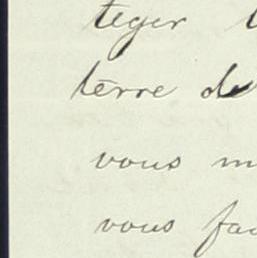 téger l
terre de
vous m
vous fa